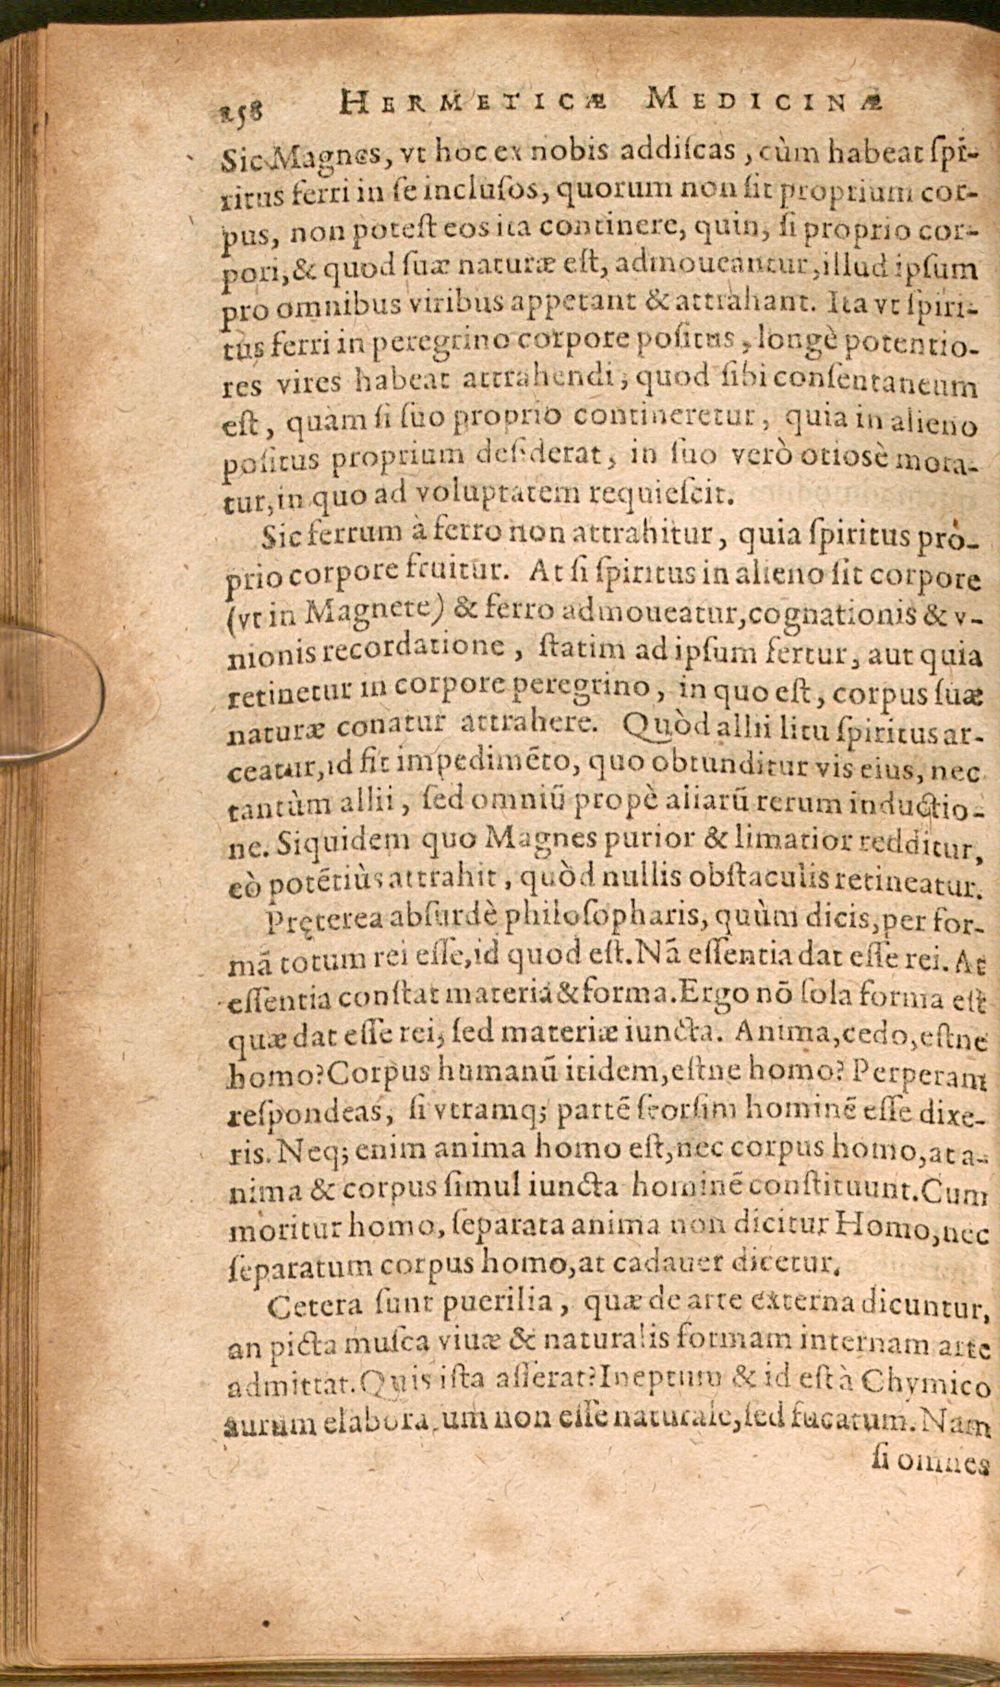 258 HERMETICÆ MEDICINÆ
Sic Magnes, vt hoc ex nobis addiſcas, cùm habeat ſpi-
ritus ferri in ſe incluſos, quorum non ſit proprium cor-
pus, non poteſt eos ita continere, quin, ſi proprio cor-
pori, & quod ſuæ naturæ eſt, admoueantur, illud ipſum
pro omnibus viribus appetant & attrahant. Ita vt ſpiri-
tus ferri in peregrino corpore poſitus, longè potentio-
res vires habeat attrahendi, quod ſibi conſentaneum
eſt, quàm ſi ſuo proprio contineretur, quia in alieno
poſitus proprium deſiderat, in ſuo verò otiosè mora-
tur, in quo ad voluptatem requieſcit.
Sic ferrum à ferro non attrahitur, quia ſpiritus pro-
prio corpore fruitur. At ſi ſpiritus in alieno ſit corpore
(vt in Magnete) & ferro admoueatur, cognationis & v-
nionis recordatione, ſtatim ad ipſum fertur, aut quia
retinetur in corpore peregrino, in quo eſt, corpus ſuæ
naturæ conatur attrahere. Quòd allii litu ſpiritus ar-
ceatur, id fit impedimẽto, quo obtunditur vis eius, nec
tantùm allii, ſed omniũ propè aliarũ rerum inductio-
ne. Siquidem quo Magnes purior & limatior redditur,
eò potẽtiùs attrahit, quòd nullis obſtaculis retineatur.
Pręterea abſurdè philoſopharis, quùm dicis, per for-
mã totum rei eſſe, id quod eſt. Nã eſſentia dat eſſe rei. At
eſſentia conſtat materia & forma. Ergo nõ ſola forma eſt
quæ dat eſſe rei, ſed materiæ iuncta. Anima, cedo, eſtne
homo? Corpus humanũ itidem, eſtne homo? Perperam
reſpondeas, ſi vtramq; partẽ ſeorſim hominẽ eſſe dixe-
ris. Neq; enim anima homo eſt, nec corpus homo, at a-
nima & corpus ſimul iuncta hominẽ conſtituunt. Cum
moritur homo, ſeparata anima non dicitur Homo, nec
ſeparatum corpus homo, at cadauer dicetur.
Cetera ſunt puerilia, quæ de arte externa dicuntur,
an picta muſca viuæ & naturalis formam internam arte
admittat. Quis iſta aſſerat? Ineptum & id eſt à Chymico
aurum elaboratum non eſſe naturale, ſed fucatum. Nam
ſi omnes